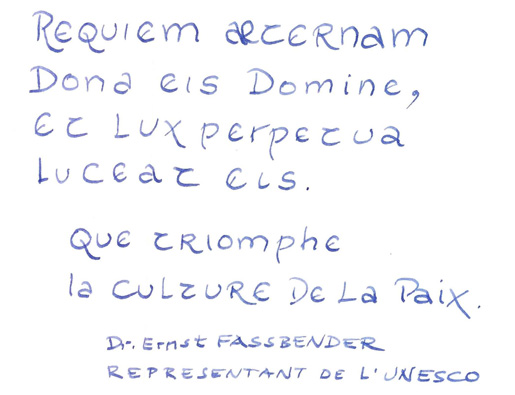 Requiem æternam
Dona eis Domine,
et lux perpetua
luceat eis.
Que triomphe
la culture de la Paix.
Dr. Ernst FASSBENDER
REPRESENTANT DE L'UNESCO